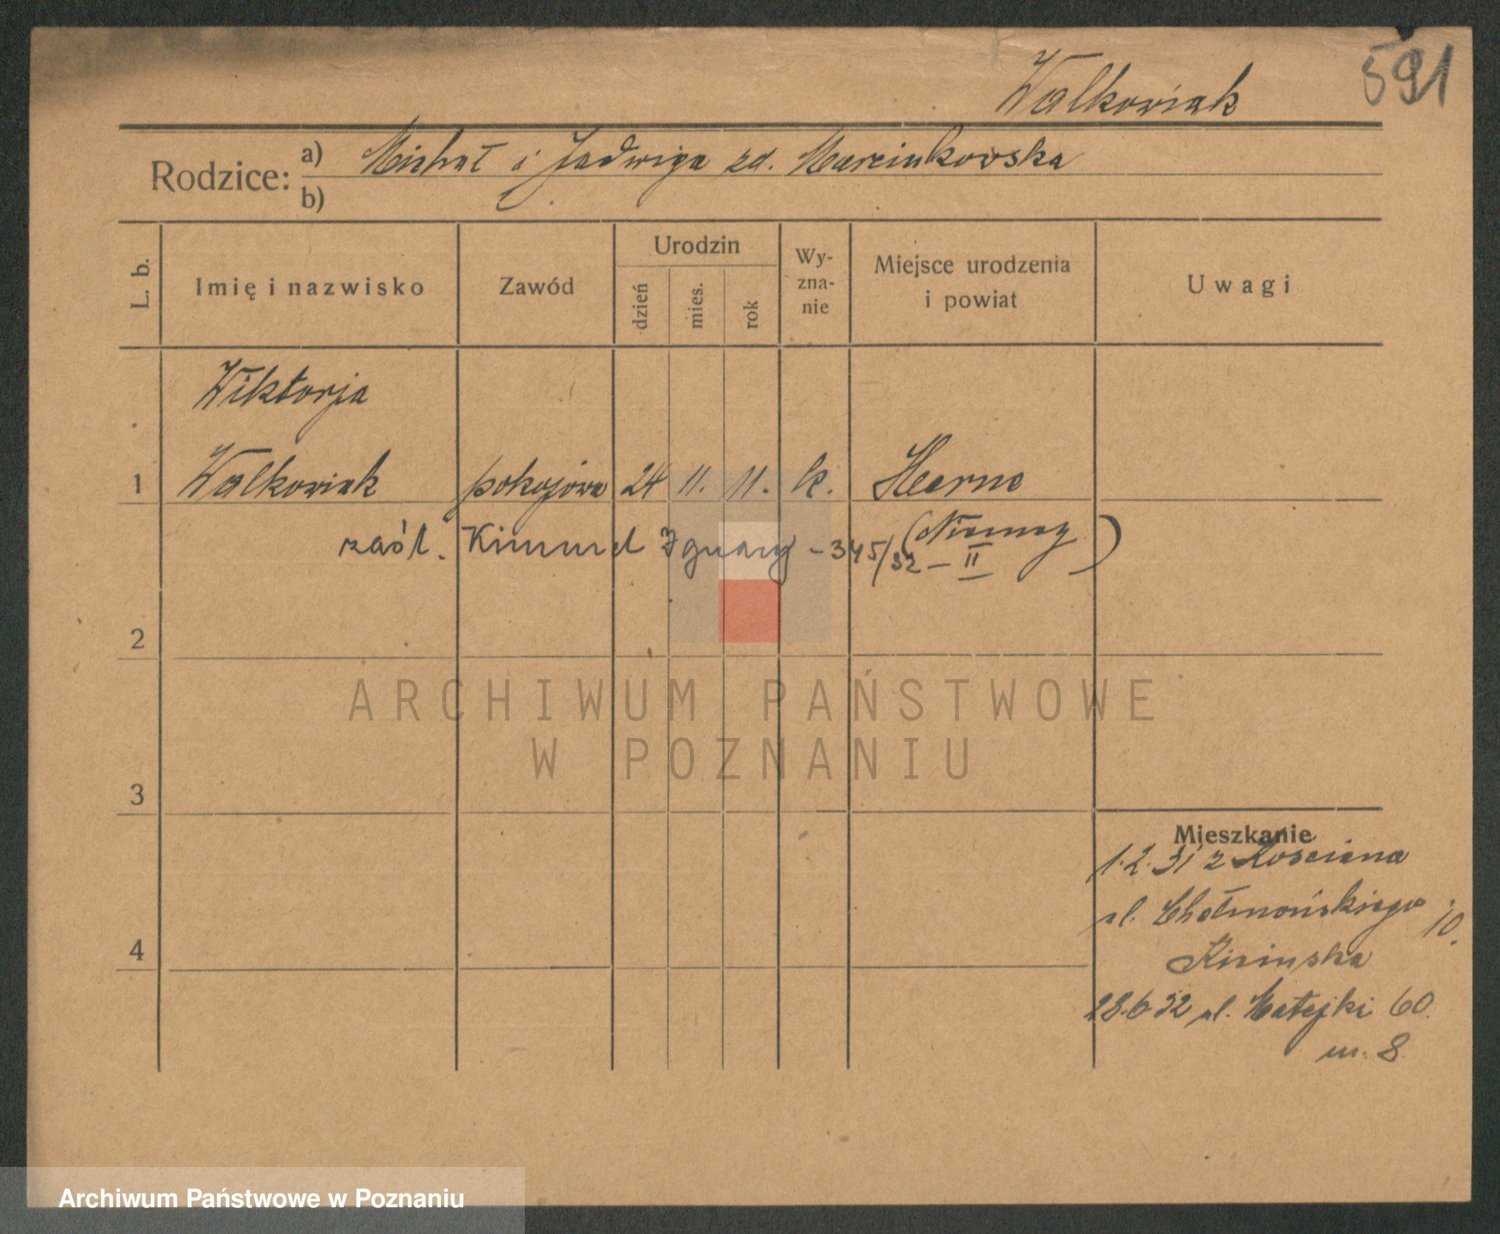 591
Walkowiak
Rodzice:
a) Michał i Jadwiga zd. Marcinkowska
b)
L. b.
Imię i nazwisko
Zawód
Urodzin
dzień
mies.
rok
Wy-
zna-
nie
Miejsce urodzenia
i powiat
Uwagi
Wiktorja
1 Walkowiak pokojówa 24 11. 11. k. Heerne
(Niemcy)
zaśl. Kimmel Ignacy - 345/32 - II
2
3
4
Mieszkanie
1.2.31 z Kościana
ul. Chełmońskiego 10.
28.6.32 ul. Matejki 60.
m. 8.
ARCHIWUM PAŃSTWOWE
W POZNANIU
Archiwum Państwowe w Poznaniu